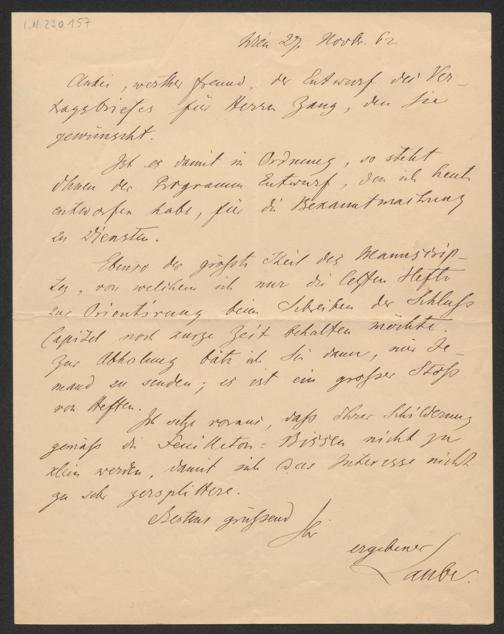 I.N. 220.157
Wien 27. Novbr. 62
Anbei, werther Freund, der Entwurf des Ver-
tragsbriefes für Herrn Zang, den Sie
gewünscht.
Ist es damit in Ordnung, so steht
Ihnen der Programm Entwurf, den ich heute
entworfen habe, für die Bekanntmachung
zu Diensten.
Ebenso der größte Theil des Manuscrip-
tes, von welchem ich nur die letzten Hefte
zur Orientirung beim Schreiben der Schluß
Capitel noch kurze Zeit behalten möchte.
Zur Abholung bäte ich Sie dann, mir Je-
mand zu senden; es ist ein großer Stoß
von Heften.
Ich setze voraus, daß Ihrer Schilderung
gemäß die Feuilleton-Bissen nicht zu
klein werden, damit sich das Interesse nicht
zu sehr zersplittere.
Bestens grüßend Ihr
ergebener
Laube.